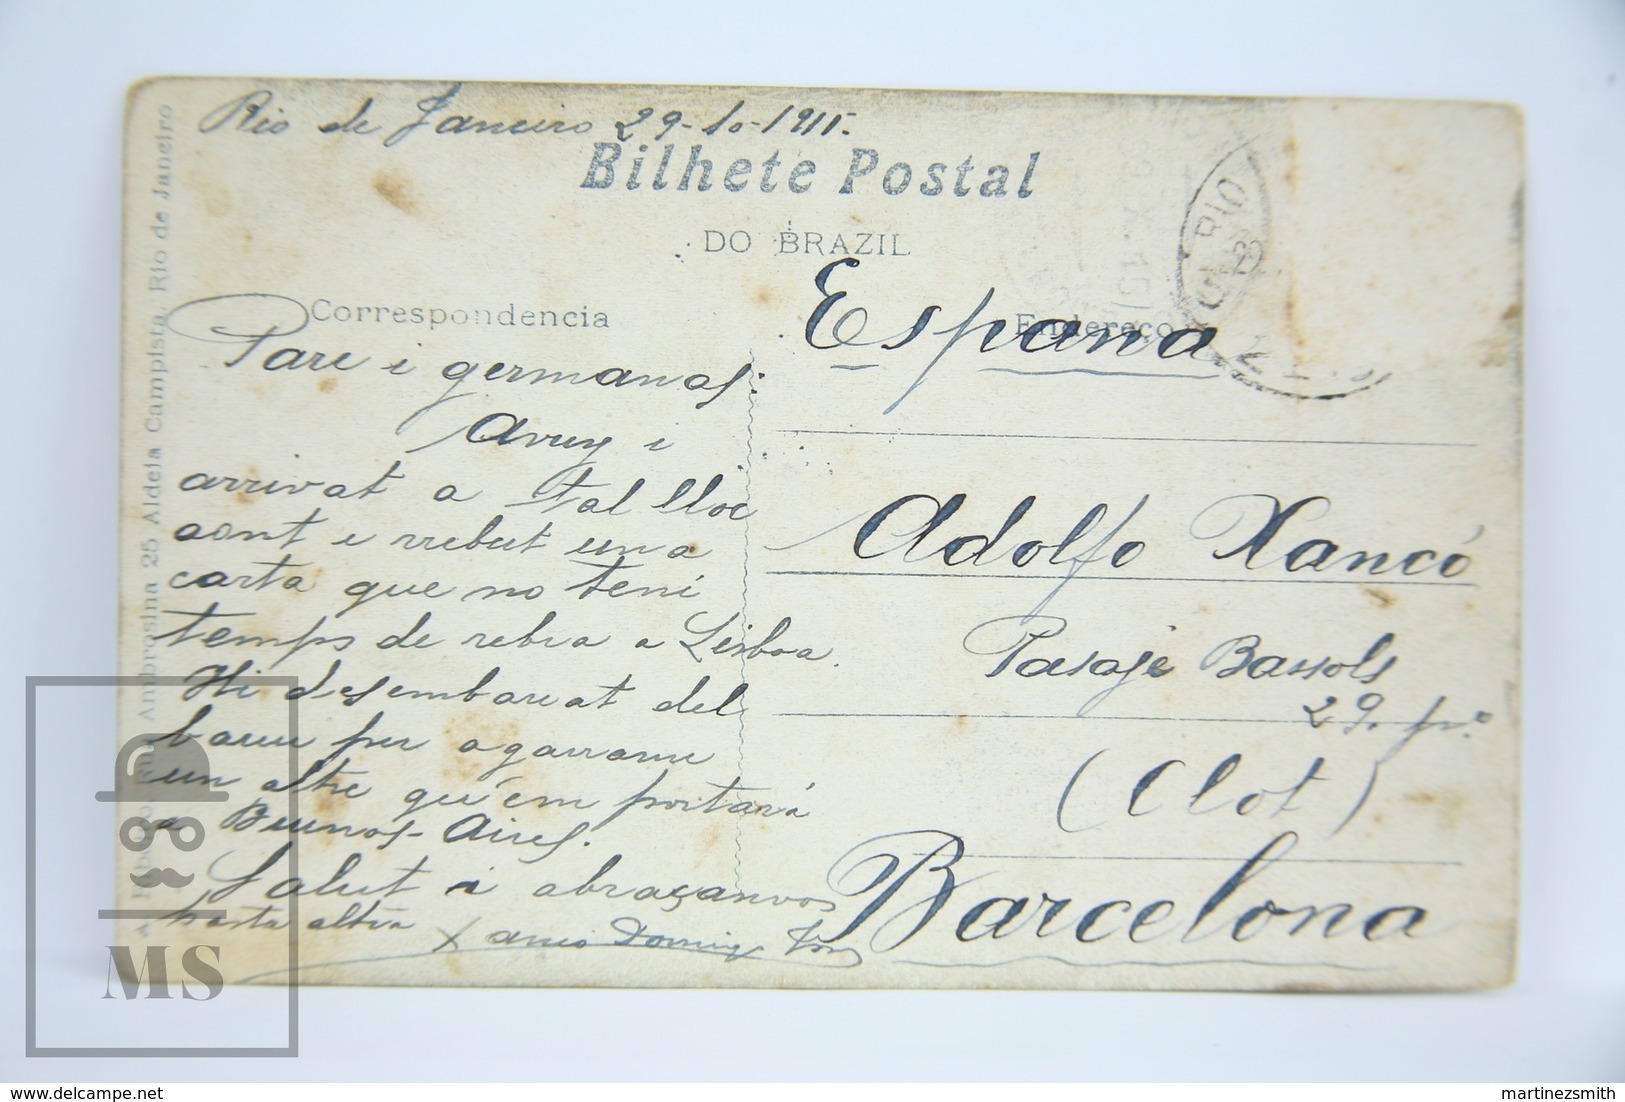 Rio de Janeiro 29-10-1915.
Bilhete Postal
DO BRAZIL
Correspondencia
Endereço
Pare i germanas:
Avuy i
arrivat a tal lloc
sont e rrebut una
carta que no tení
temps de rebra a Lisboa.
Hi desembarcat del
barcu per agarrarne
un altre qu'em portará
a Buenos-Aires.
Salut i abraçanvos
hasta altra
España
Adolfo Xancó
Pasaje Bassols
29. pr.
(Clot)
Barcelona
Ambrosina 25 Aldeia Campista, Rio de Janeiro
RIO
MS
delcampe.net
martinezsmith